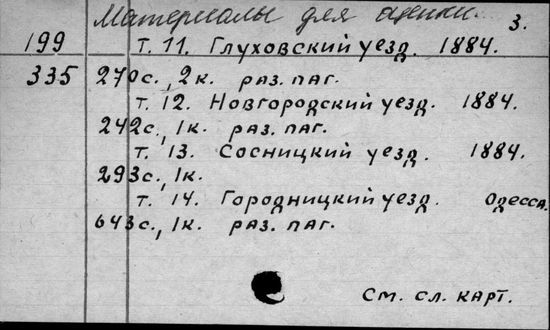 Материалы для оценки... 3.
199 т. 11. Глуховский уезд. 1884.
335 270с., 2к. раз. паг.
т. 12. Новгородский уезд. 1884.
242с., 1к. раз. паг.
т. 13. Сосницкий уезд. 1884.
293с., 1к.
т. 14. Городницкий уезд. Одесса.
643с., 1к. раз. паг.
См. сл. карт.